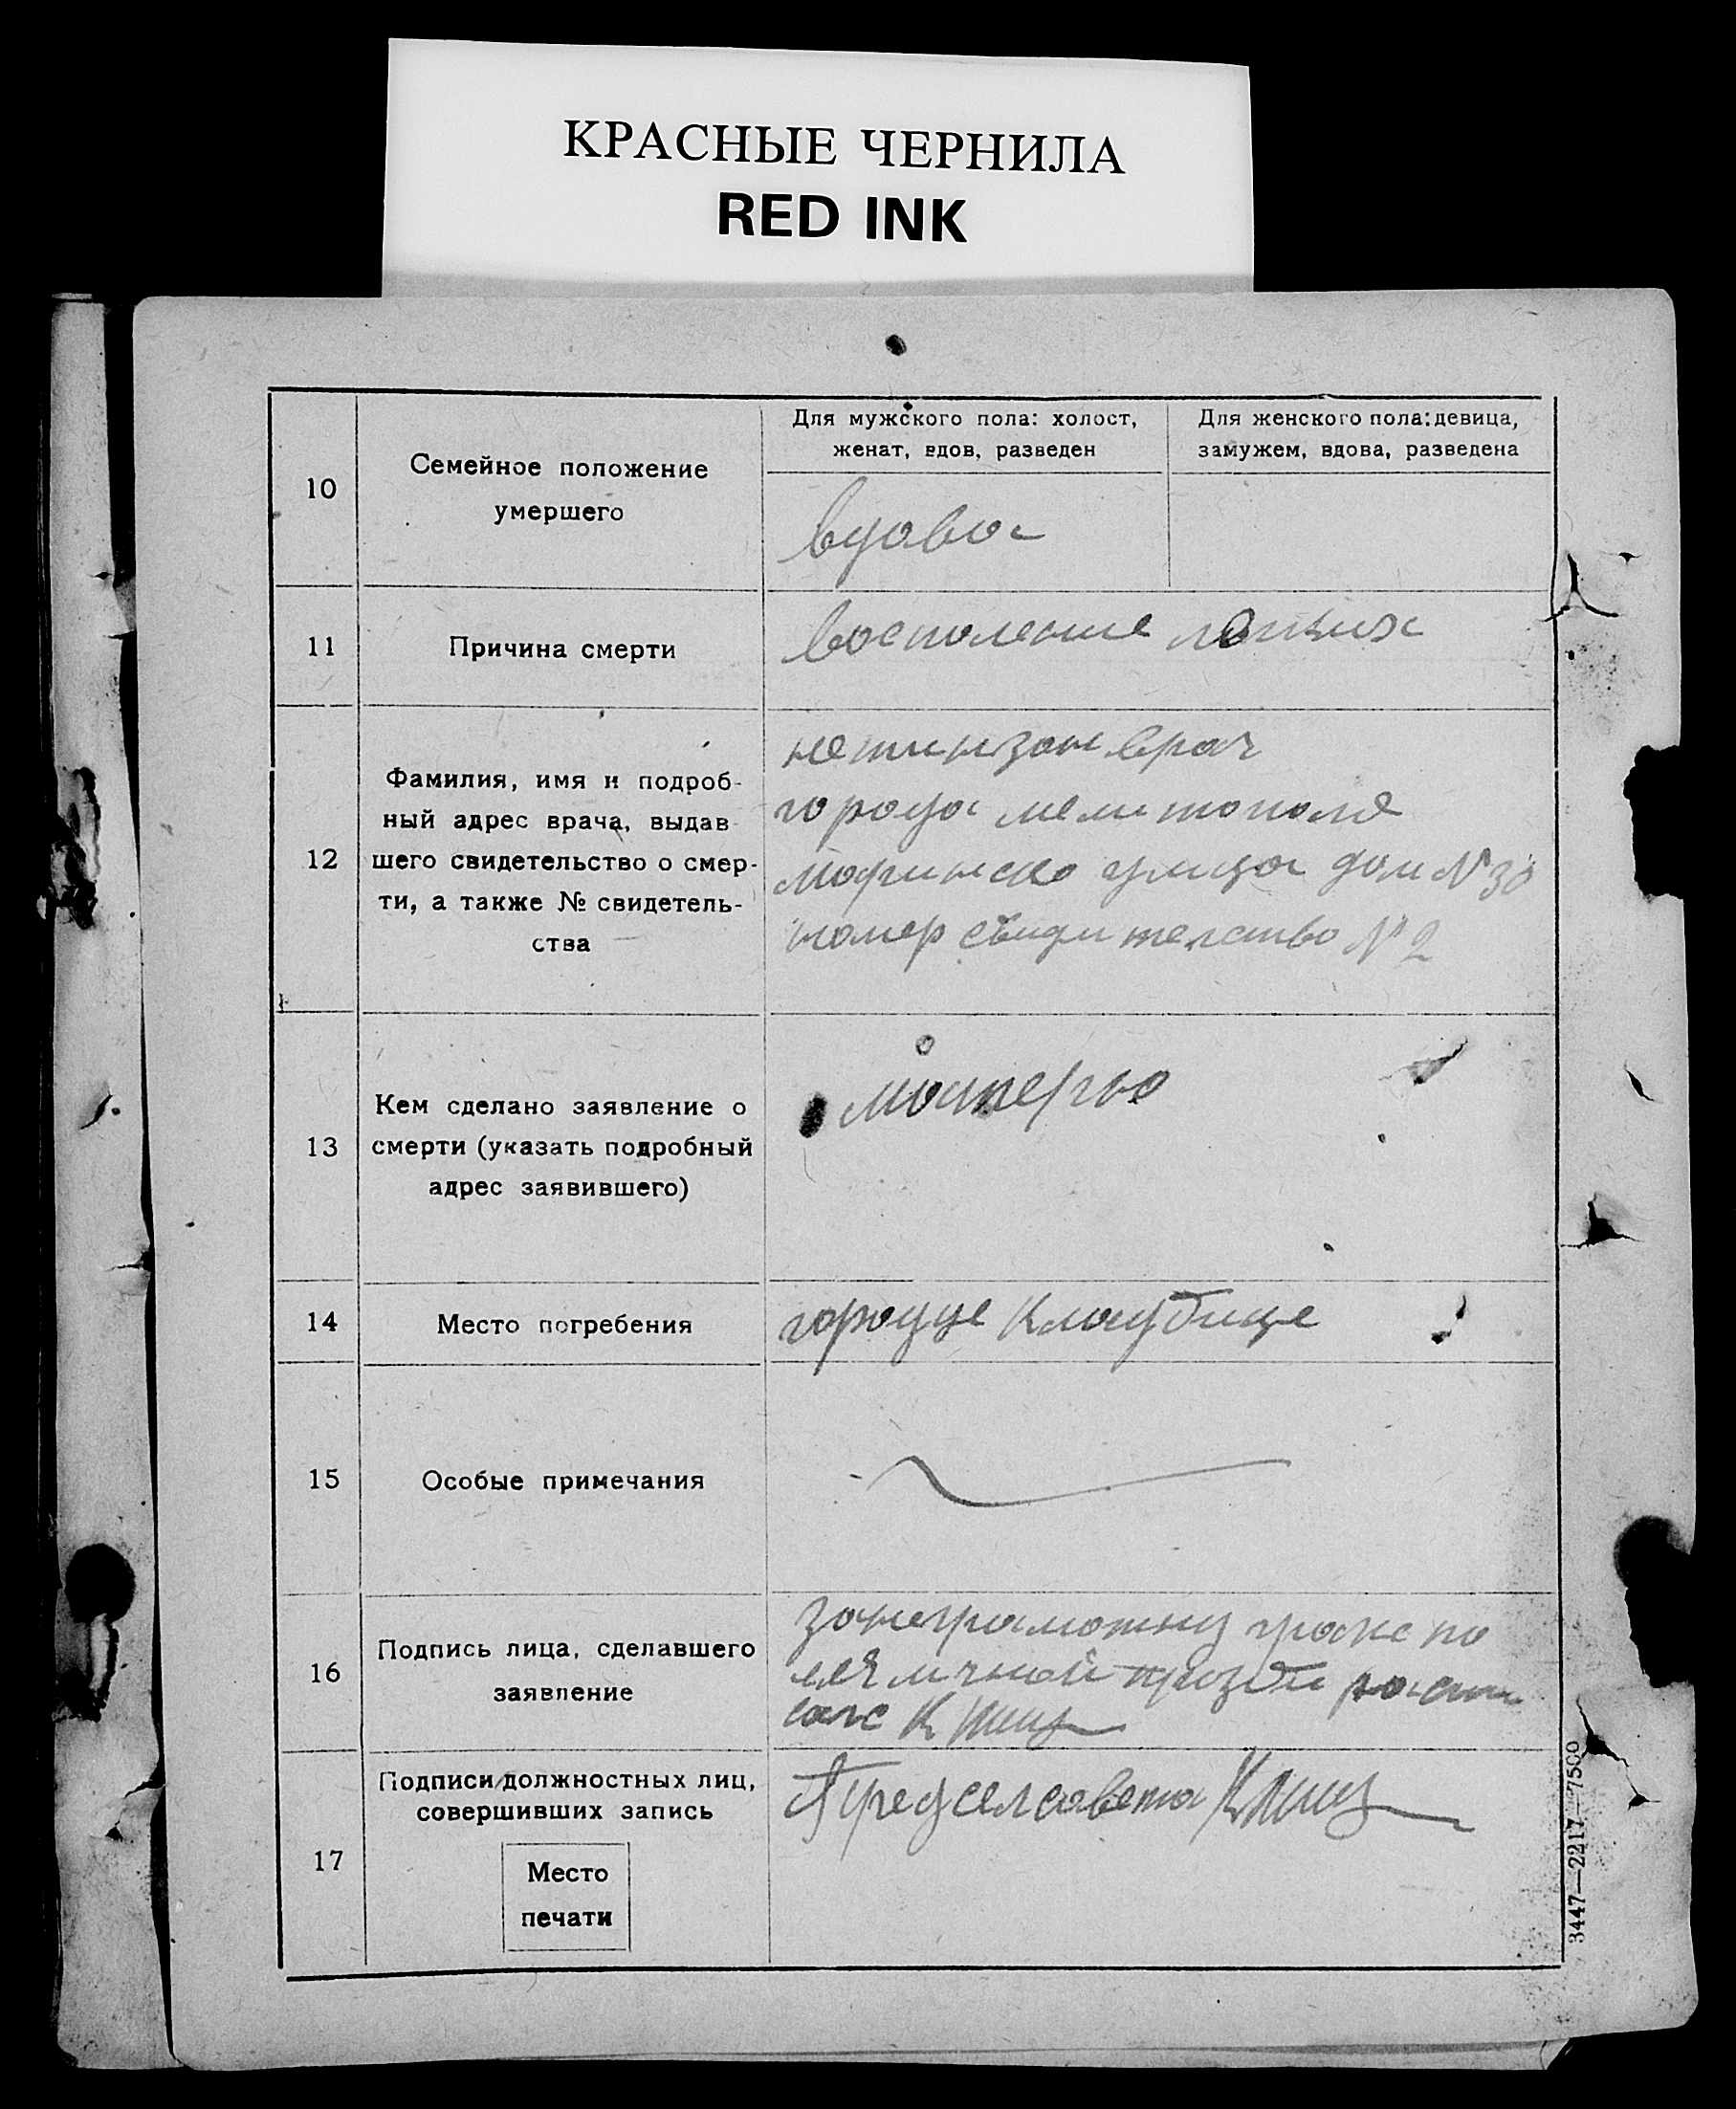 КРАСНЫЕ ЧЕРНИЛА
RED INK
10
Семейное положение
умершего
Для мужского пола: холост,
женат, вдов, разведен
Для женского пола: девица,
замужем, вдова, разведена
вдова
11
Причина смерти
восполение
12
Фамилия, имя и подроб-
ный адрес врача, выдав
шего свидетельство о смер-
ти, а также № свидетель-
ства
врач
города мелитополе
улица дом N 30
номер свидителство N 2
13
Кем сделано заявление о
смерти (указать подробный
адрес заявившего)
матерью
14
Место погребения
городце кладбище
15
Особые примечания
16
Подпись лица, сделавшего
заявление
занеграмотну по
личной прозби
17
Подписи должностных лиц,
совершивших запись
Место
печати
Пред селсовета
3447—2217—7500